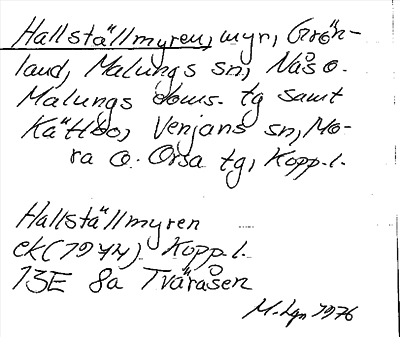 Hallställmyren, myr, Grön-
land, Malungs sn, Nås o.
Malungs doms. tg samt
Kättbo, Venjans sn, Mo-
ra o. Orsa tg, Kopp.l.
Hallställmyren
ek (1974) Kopp.l.
13E 8a Tväråsen
1976